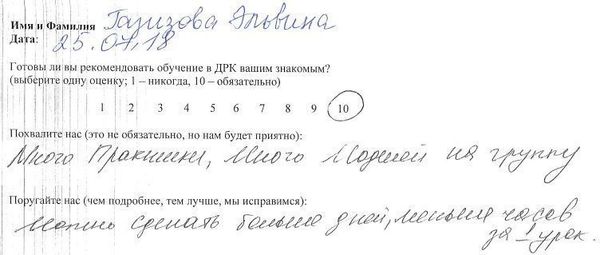 Имя и Фамилия Газизова Эльвина
Дата: 25.07.18
Готовы ли вы рекомендовать обучение в ДРК вашим знакомым?
(выберите одну оценку; 1 – никогда, 10 – обязательно)
1 2 3 4 5 6 7 8 9 10
Похвалите нас (это не обязательно, но нам будет приятно):
Много Практики, много моделей на группу
Поругайте нас (чем подробнее, тем лучше, мы исправимся):
Можно сделать больше дней, меньше часов
за 1 урок.